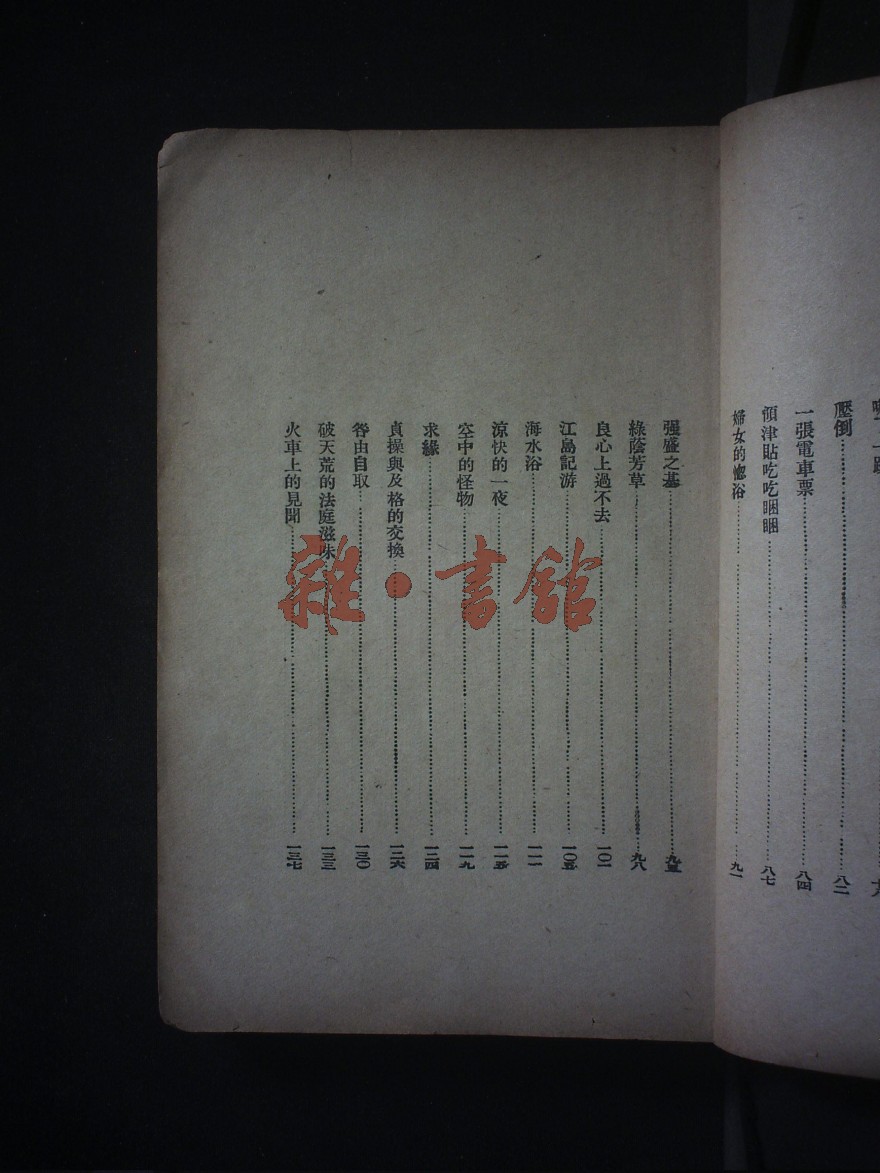 壓倒……八二
一張電車票……八四
領津貼吃吃睏睏……八七
婦女的惚浴……九一
强盛之基……九五
綠蔭芳草……九八
良心上過不去……一〇一
江島記游……一〇五
海水浴……一一一
涼快的一夜……一一五
空中的怪物……一一九
求緣……一二四
貞操與及格的交換……一二六
咎由自取……一三〇
破天荒的法庭滋味……一三三
火車上的見聞……一三七
雜·書館